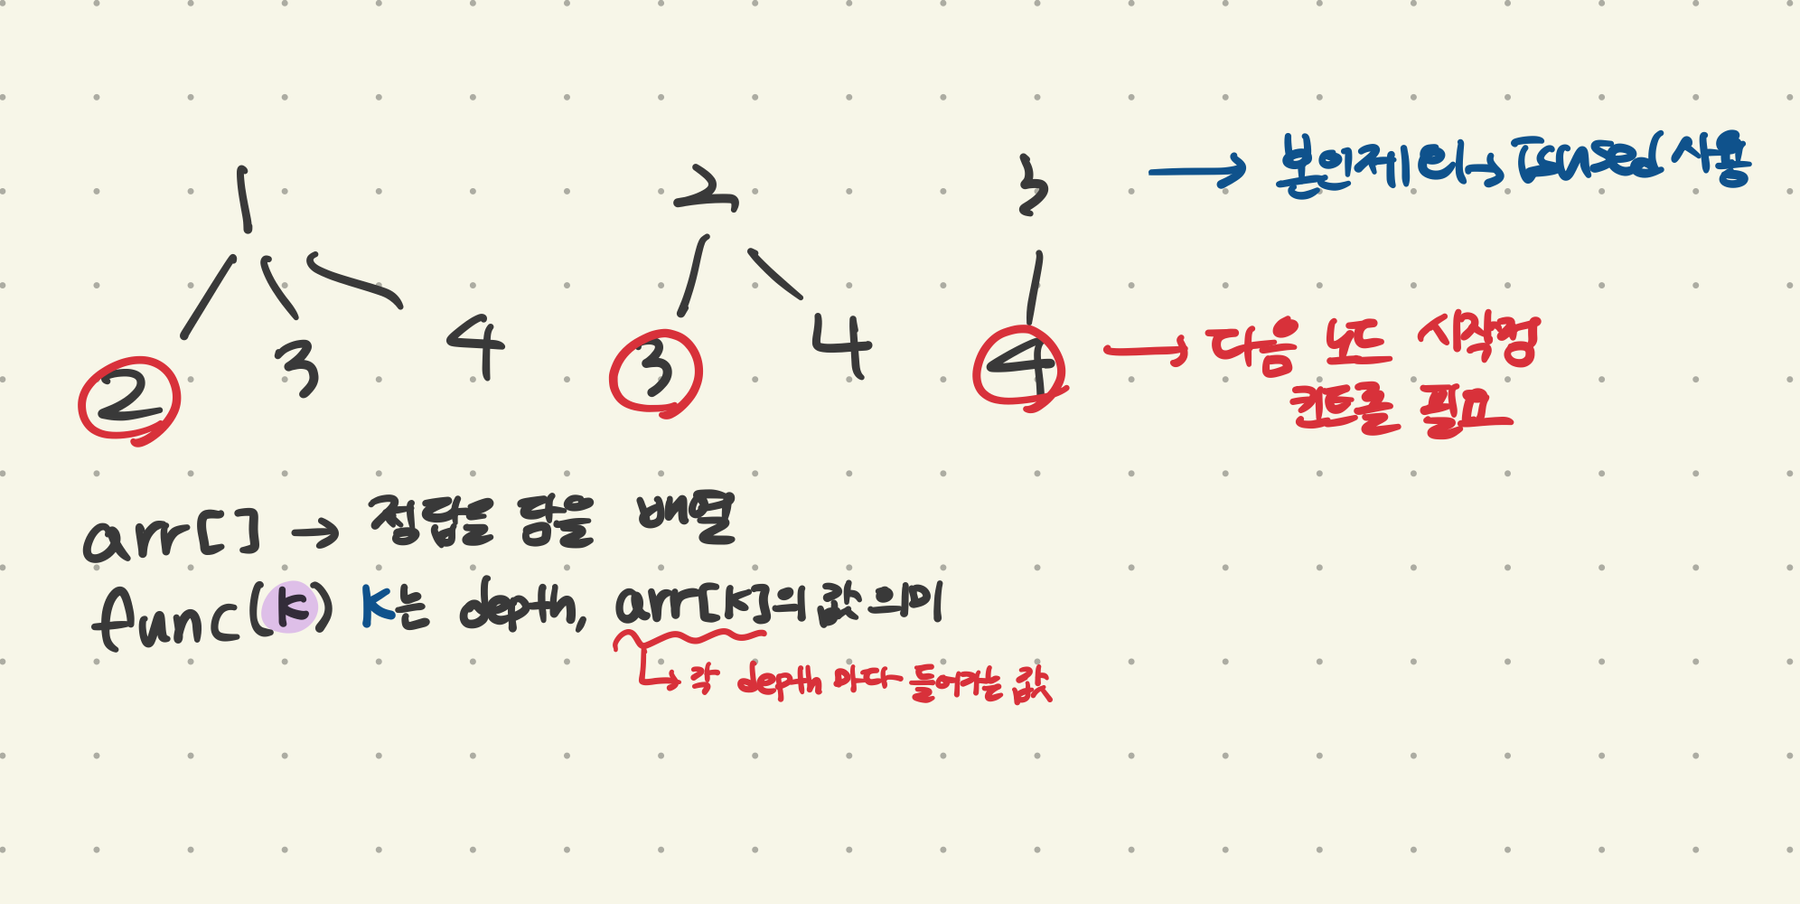 1 2 3 → 본인제외 → Isused 사용
2 3 4 3 4 4 → 다음 노드 시작점
컨트롤 필요
arr[] → 정답을 담을 배열
func(k) k는 depth, arr[k]의 값 의미
↳ 각 depth 마다 들어가는 값